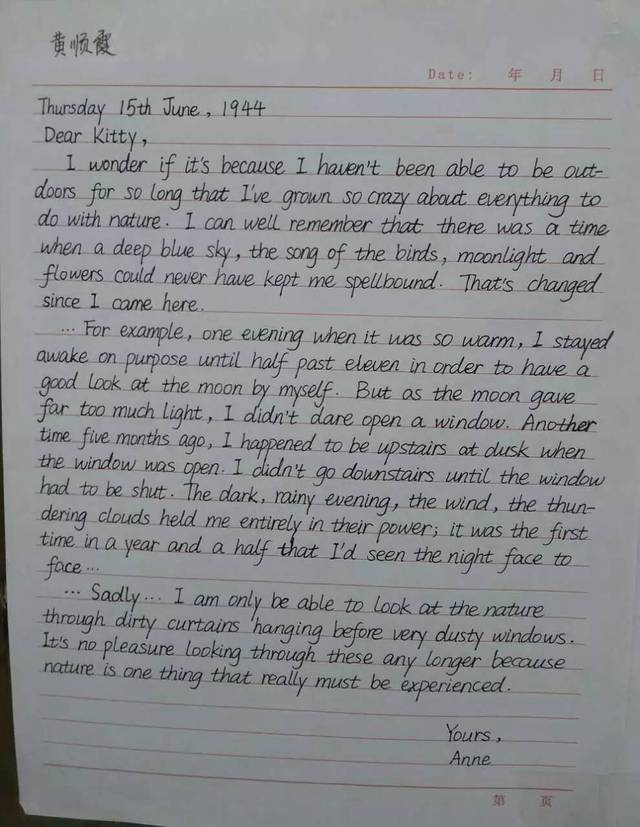 黄顺霞
Date: 年 月 日
Thursday 15th June, 1944
Dear Kitty,
I wonder if it's because I haven't been able to be out-
doors for so long that I've grown so crazy about everything to
do with nature. I can well remember that there was a time
when a deep blue sky, the song of the birds, moonlight and
flowers could never have kept me spellbound. That's changed
since I came here.
... For example, one evening when it was so warm, I stayed
awake on purpose until half past eleven in order to have a
good look at the moon by myself. But as the moon gave
far too much light, I didn't dare open a window. Another
time five months ago, I happened to be upstairs at dusk when
the window was open. I didn't go downstairs until the window
had to be shut. The dark, rainy evening, the wind, the thun-
dering clouds held me entirely in their power; it was the first
time in a year and a half that I'd seen the night face to
face...
... Sadly... I am only be able to look at the nature
through dirty curtains hanging before very dusty windows.
It's no pleasure looking through these any longer because
nature is one thing that really must be experienced.
Yours,
Anne
第 页